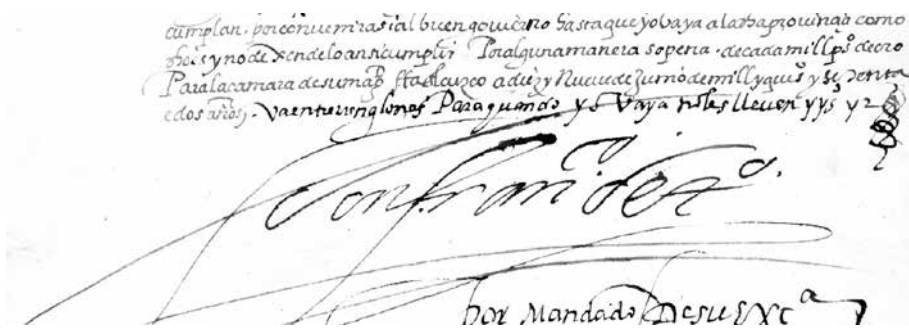 cumplan. por convenir asi al buen govierno hasta que yo vaya a la dha provincia como
dho es y no de xen de lo ansi cumplir Por alguna manera so pena. de cada mill pos de oro
Para la camara de su magd ffa
a diez y Nueve de Junio de mill y quis y setenta
e dos años. Va entre renglones Para quando yo Vaya no les lleven
Don franco de to.
por Mandado De su Exca